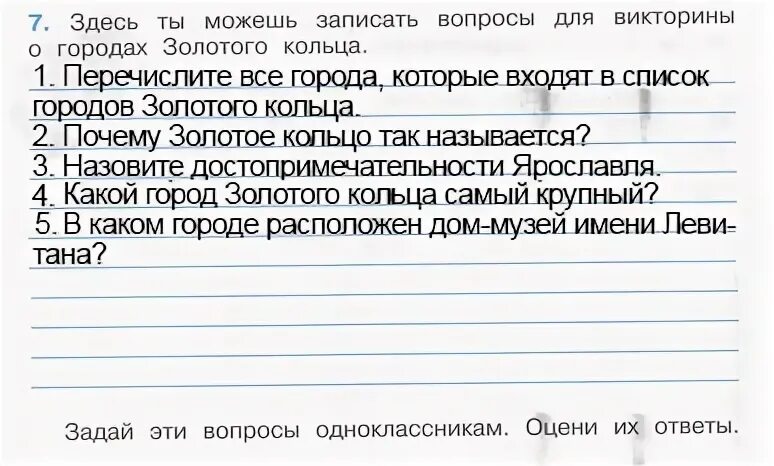 7. Здесь ты можешь записать вопросы для викторины
о городах Золотого кольца.
1. Перечислите все города, которые входят в список
городов Золотого кольца.
2. Почему Золотое кольцо так называется?
3. Назовите достопримечательности Ярославля.
4. Какой город Золотого кольца самый крупный?
5. В каком городе расположен дом-музей имени Леви-
тана?
Задай эти вопросы одноклассникам. Оцени их ответы.